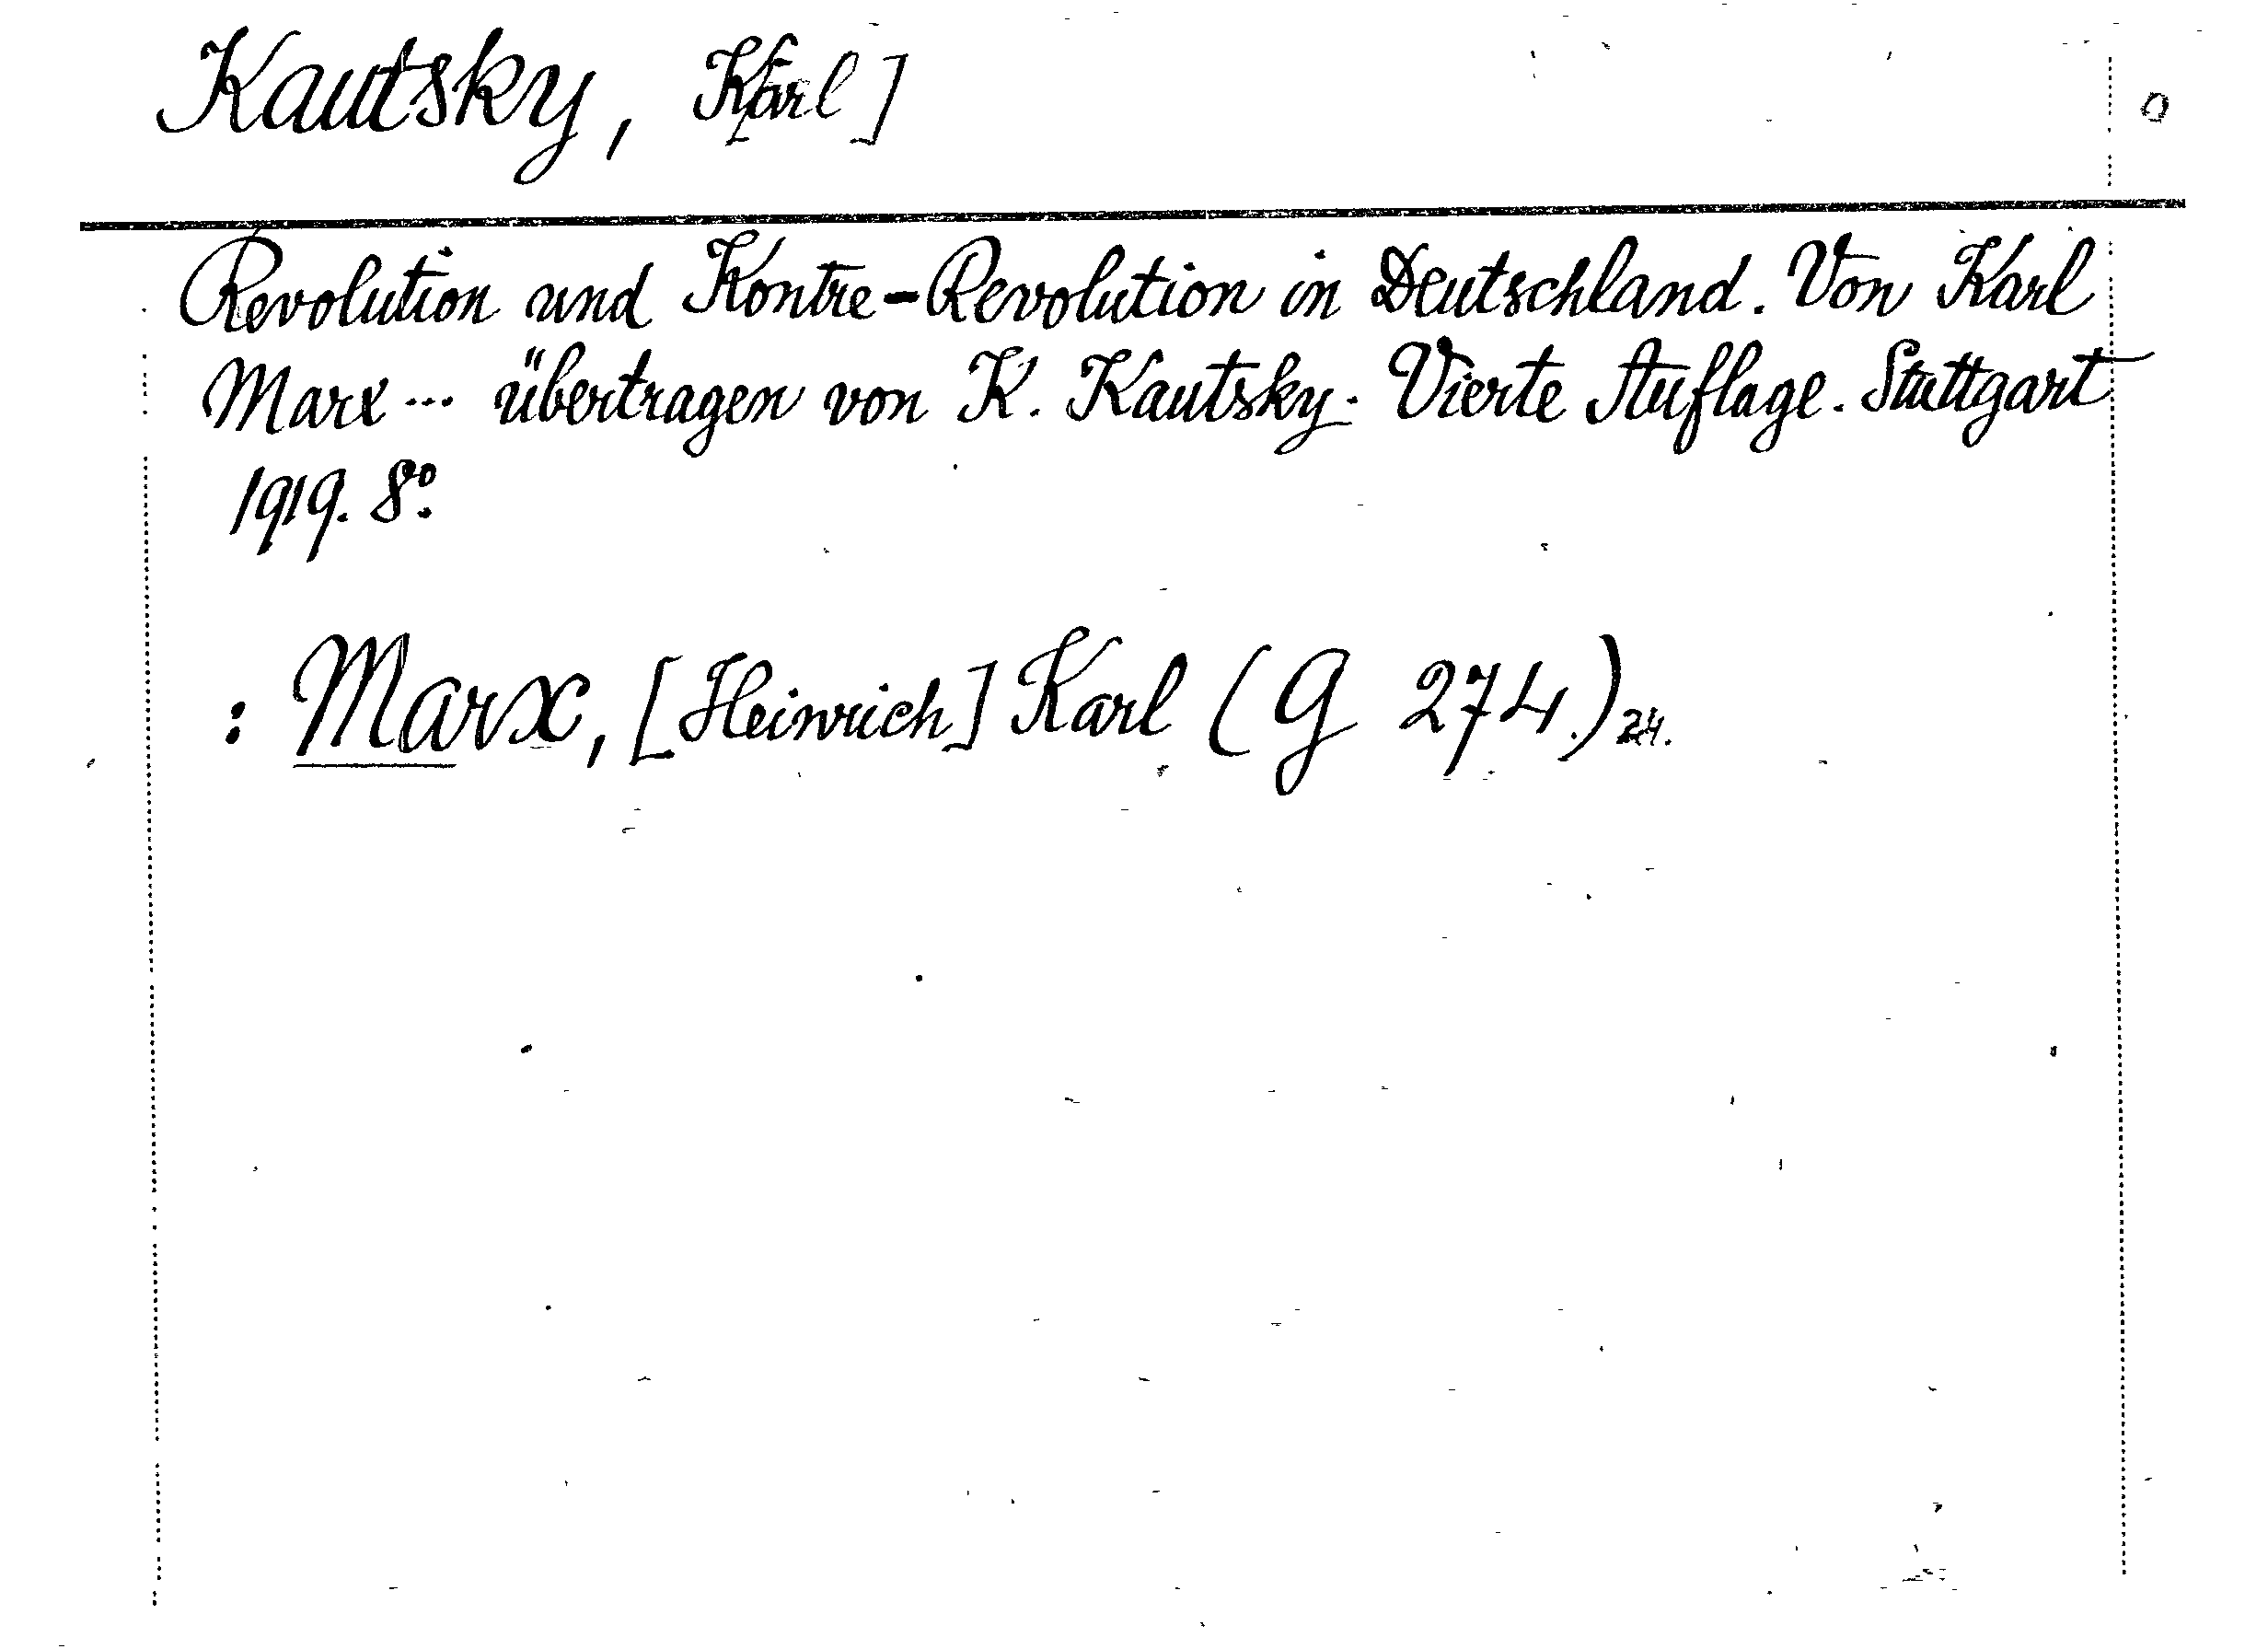 Kautsky, K[arl]
Revolution und Kontre-Revolution in Deutschland. Von Karl
Marx ... übertragen von K. Kautsky. Vierte Auflage. Stuttgart
1919. 8°.
: Marx, [Heinrich] Karl (G 274.) 24.